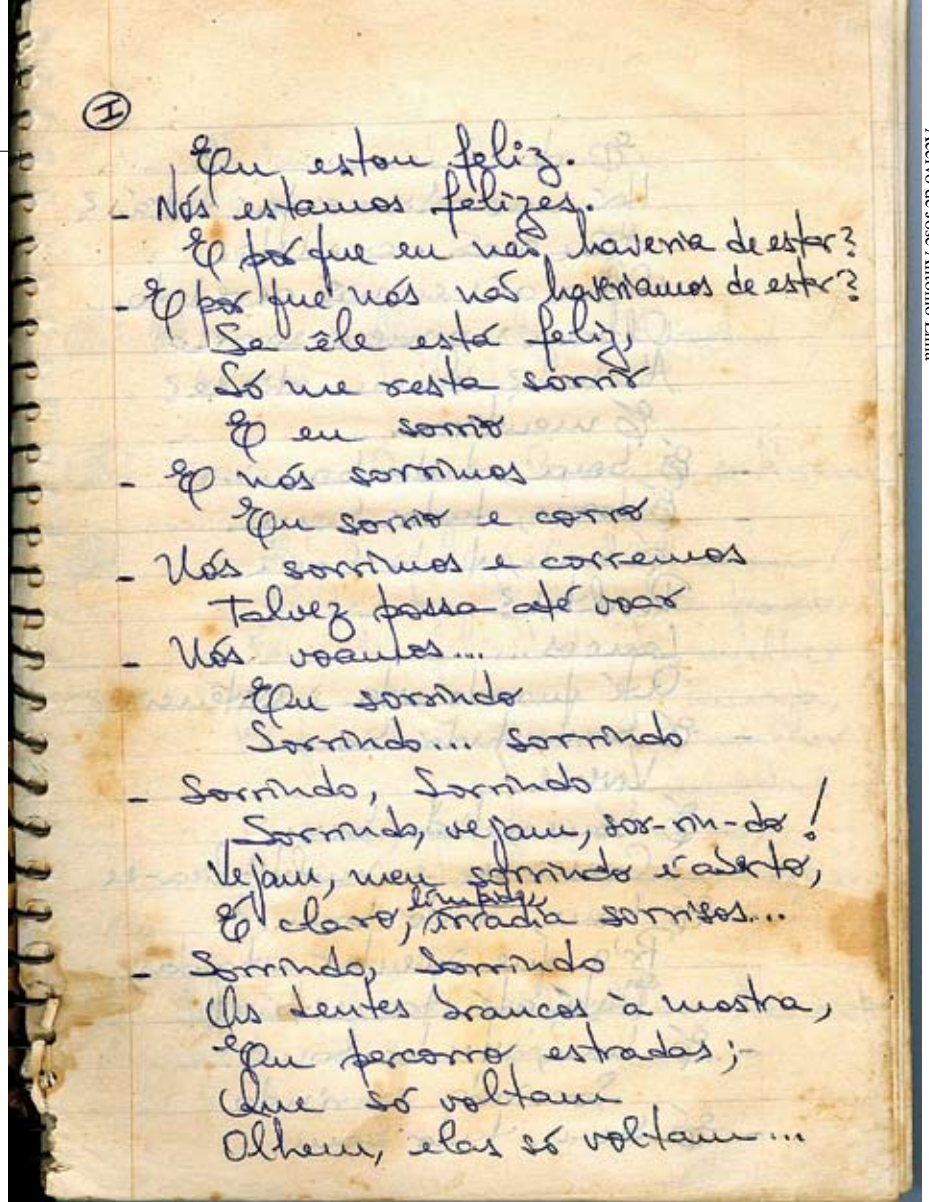 I
Eu estou feliz.
- Nós estamos felizes.
E por que eu não haveria de estar?
- E por que nós não haveríamos de estar?
Se êle está feliz,
Só me resta sorrir
E eu sorrio
- E nós sorrimos
Eu sorrio e corro
- Nós sorrimos e corremos
Talvez possa até voar
- Nós voamos...
Eu sorrindo
Sorrindo... sorrindo
- Sorrindo, Sorrindo
Sorrindo, vejam, sor-rin-do!
Vejam, meu sorrindo é aberto,
límpido
É claro, irradia sorrisos...
- Sorrindo, Sorrindo
Os dentes brancos à mostra,
Eu percorro estradas;-
Que só voltam
Olhem, elas só voltam...
Acervo de José Antônio Lima